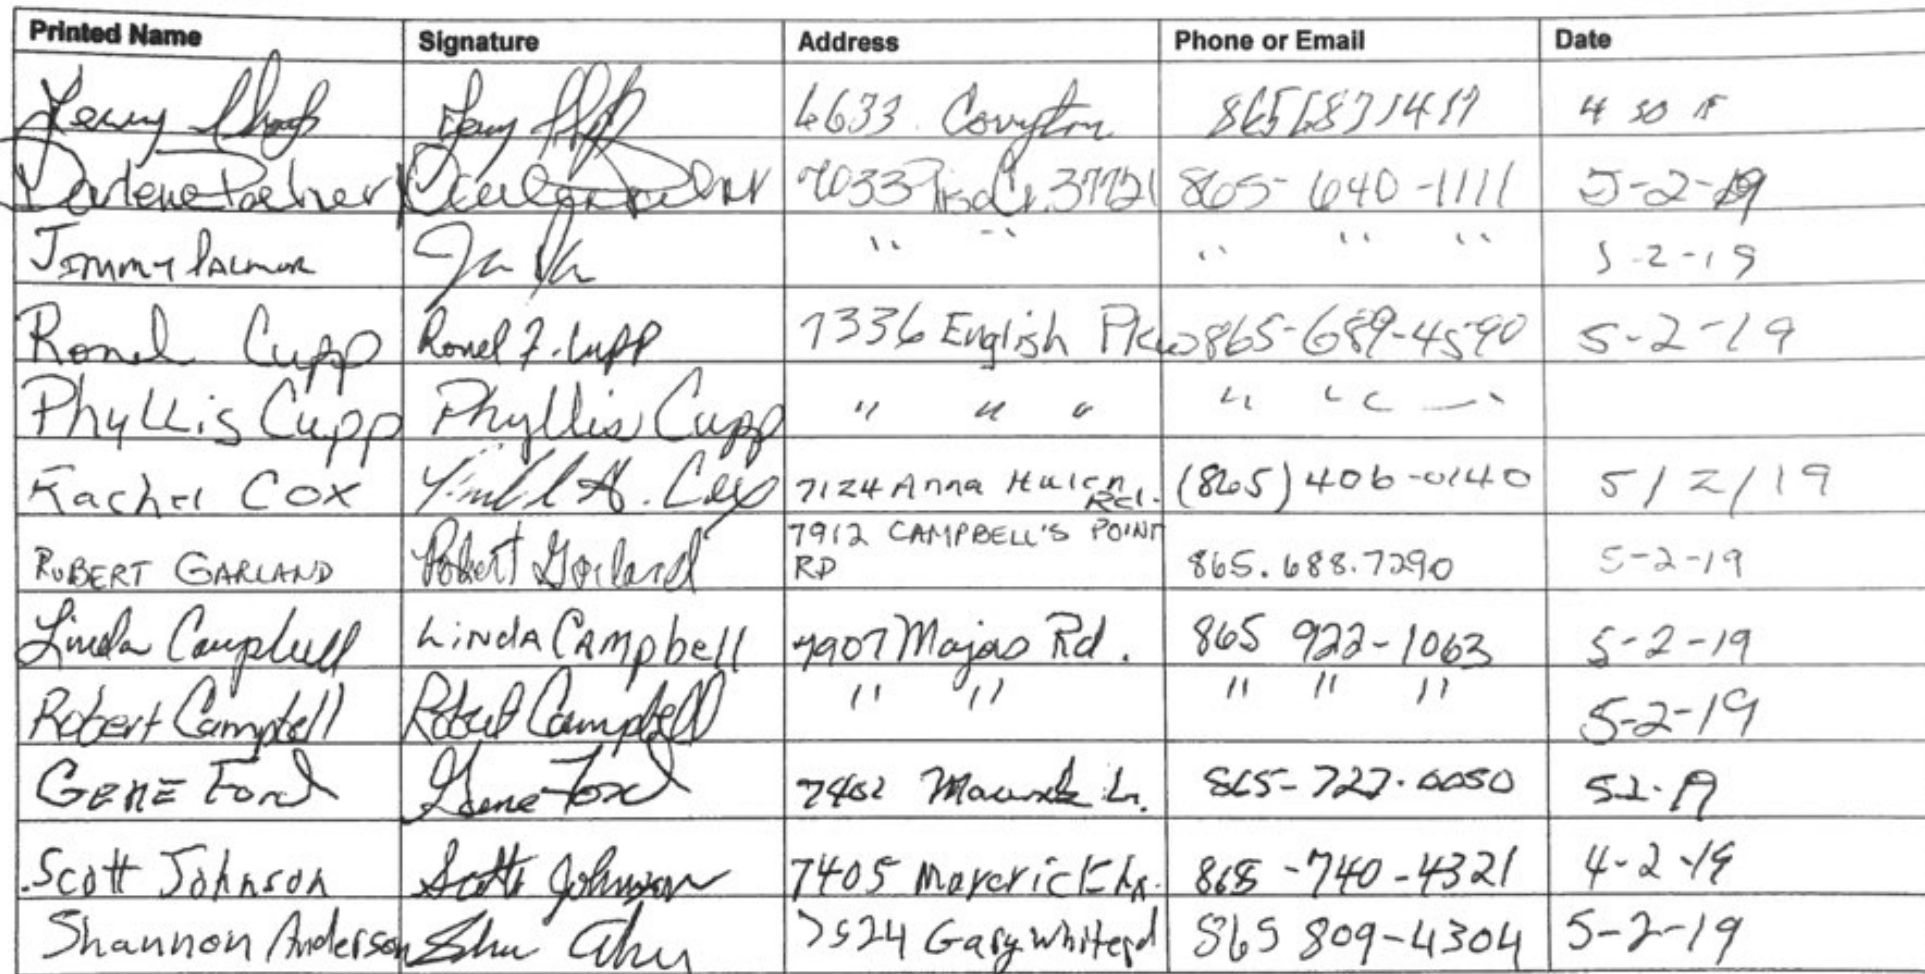 Printed Name Signature Address Phone or Email Date
6633 Covington 8656871417 4 30
Darlene Palmer 7033 Cr. 37721 865-640-1111 5-2-19
Jimmy Palmer " " " " " 5-2-19
Ronel Cupp Ronel F. Cupp 7336 English Pkw 865-689-4590 5-2-19
Phyllis Cupp Phyllis Cupp " " " " " "
Rachel Cox A. Cox 7124 Anna Hulen Rd. (865) 406-0140 5/2/19
ROBERT GARLAND Robert Garland 7912 CAMPBELL'S POINT
RD 865.688.7290 5-2-19
Linda Campbell LINDA CAMPbell 7907 Majas Rd. 865 922-1063 5-2-19
Robert Campbell Robert Campbell " " " " " 5-2-19
GENE Ford Gene Ford 7402 865-727-0050
Scott Johnson Scott Johnson 7405 Maverick Ln. 865-740-4321 4-2-19
Shannon Anderson 7524 Gary White rd 865 809-4304 5-2-19